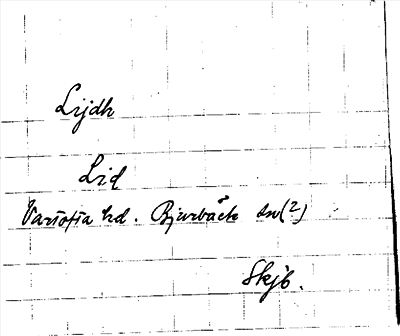 Lijdh
Lid
Vartofta hd. Bjurbäck sn(?)
Skjb.